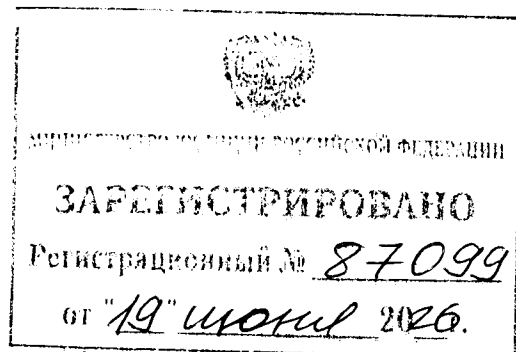 МИНИСТЕРСТВО ЮСТИЦИИ РОССИЙСКОЙ ФЕДЕРАЦИИ
ЗАРЕГИСТРИРОВАНО
Регистрационный № 87099
от "19" июня 2026.